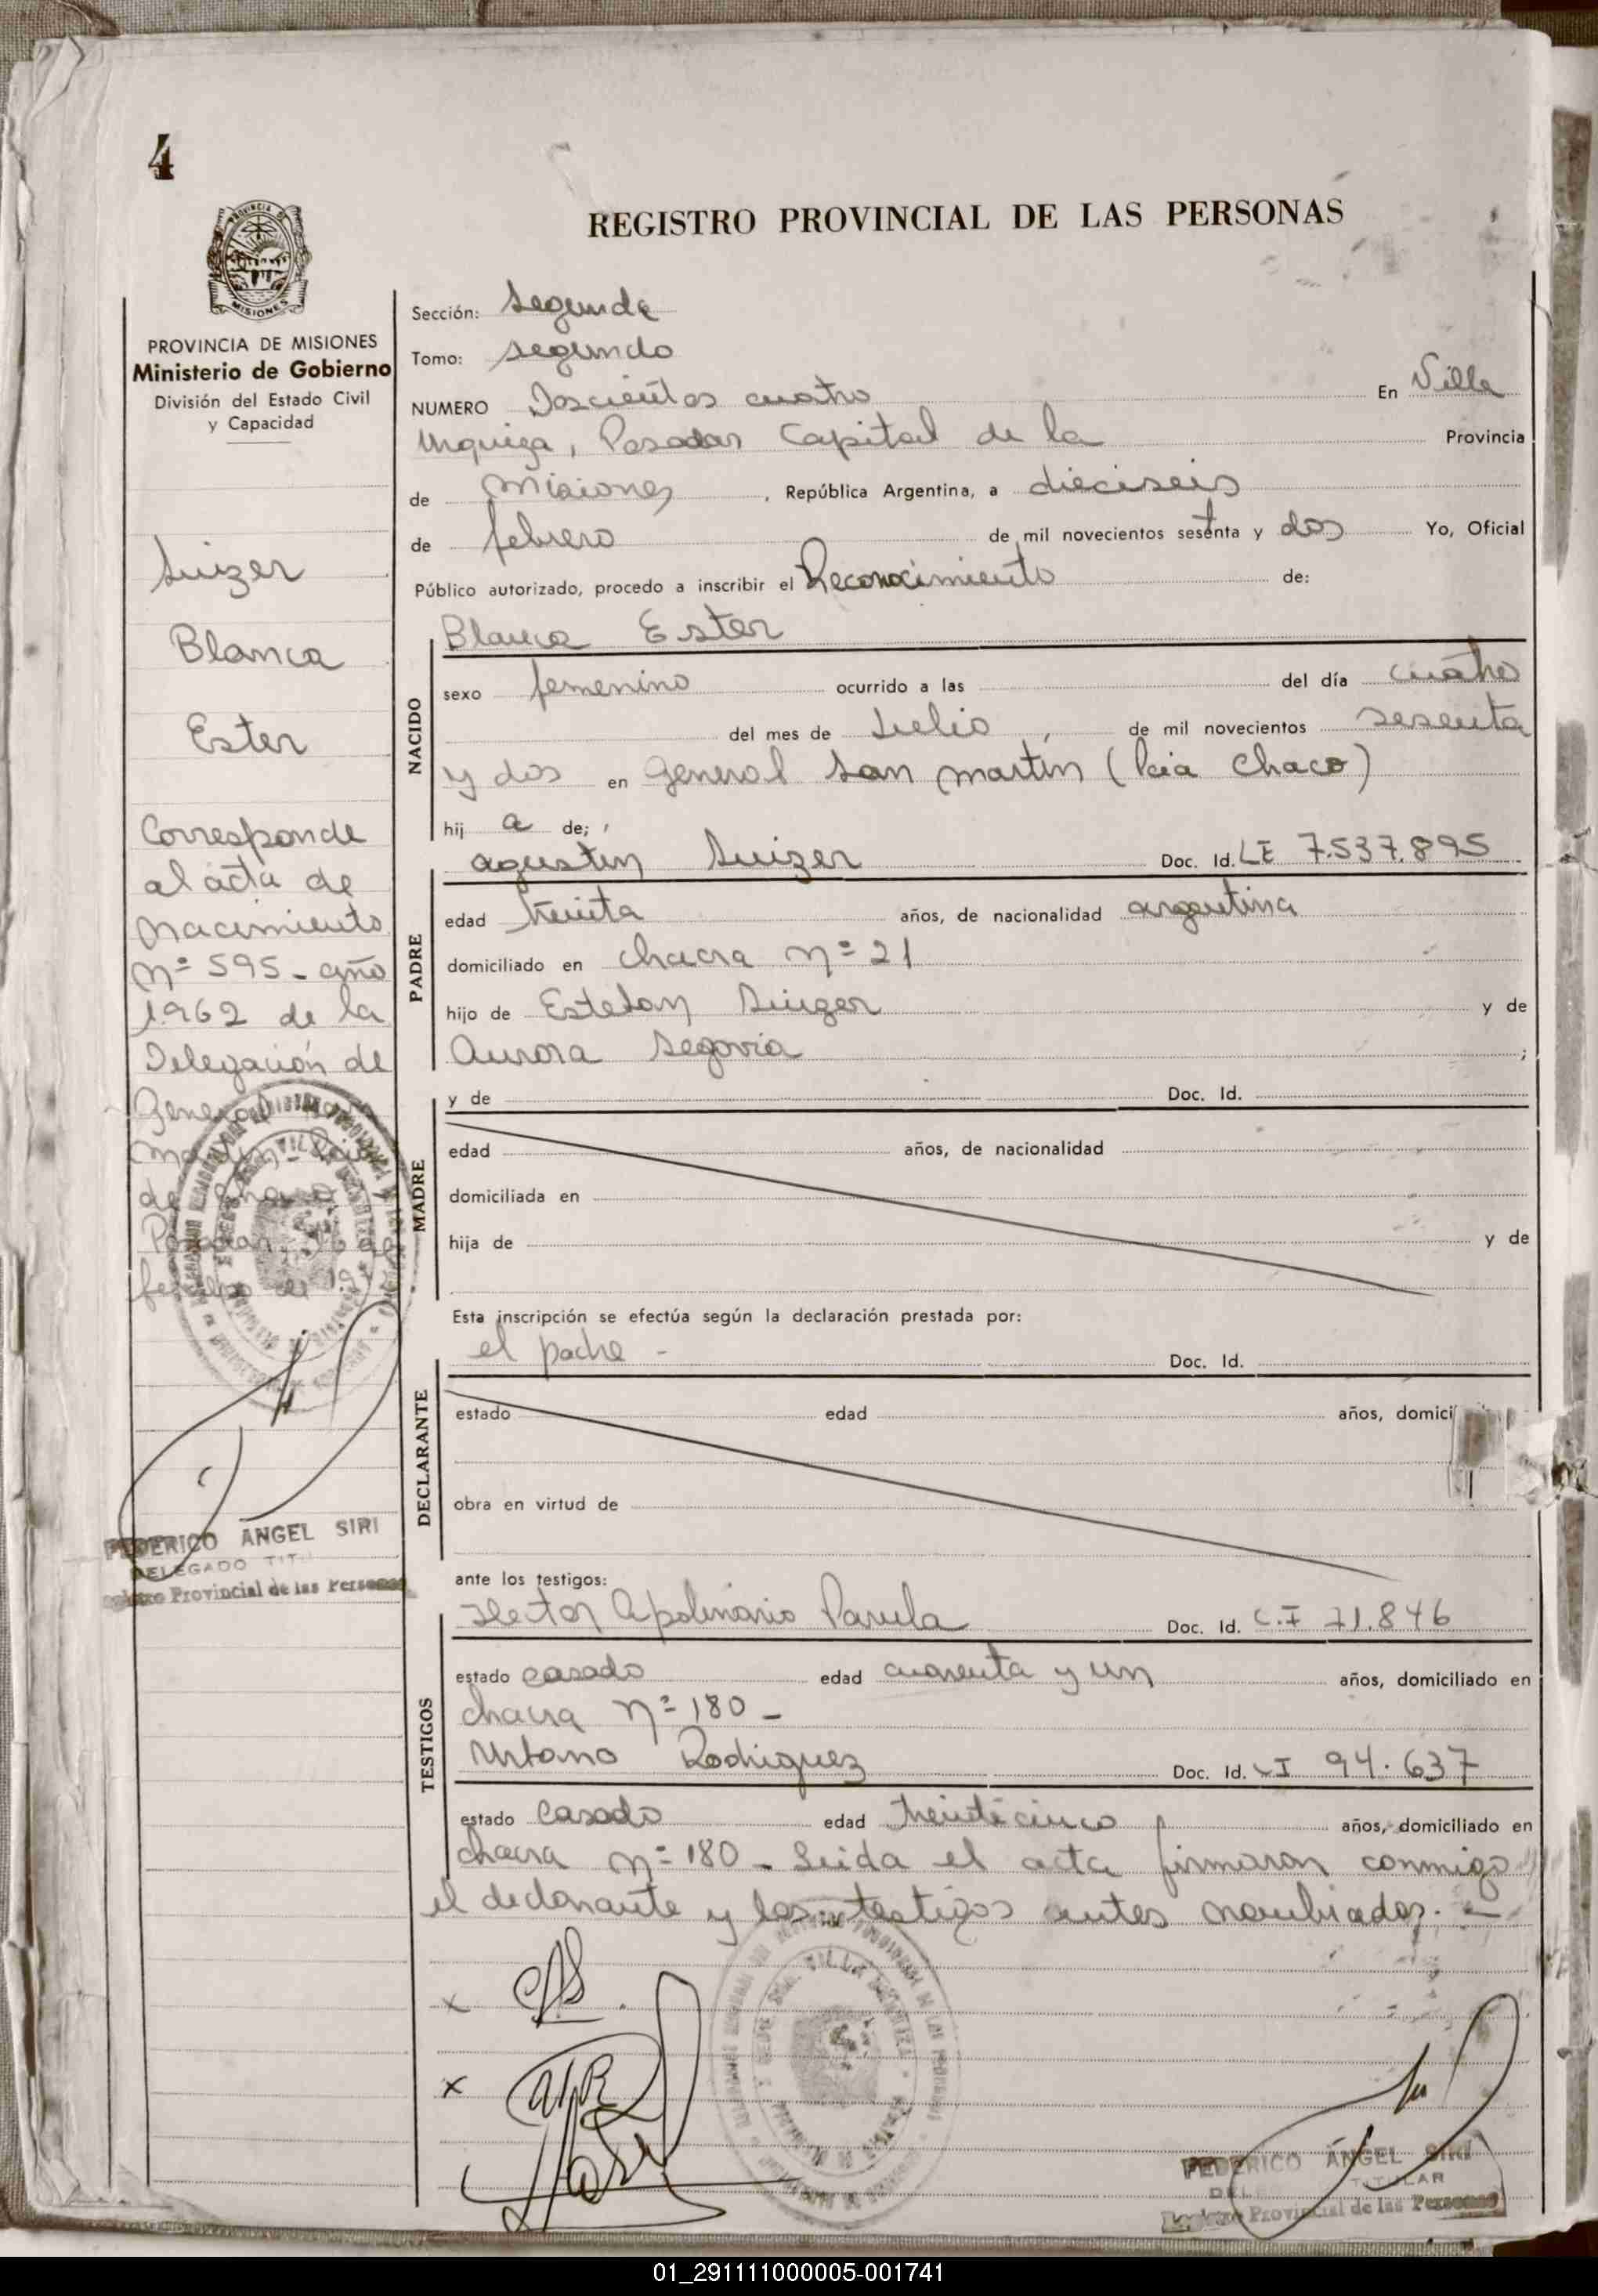 4
REGISTRO PROVINCIAL DE LAS PERSONAS
MISIONES
PROVINCIA DE MISIONES
Ministerio de Gobierno
División del Estado Civil
y Capacidad
Suizer
Blanca
Ester
Corresponde
al acta de
nacimiento
nº 595 - año
1962 de la
Delegación de
General
Martin - Pcia
de
Posadas, 16 de
febrero de 19
FEDERICO ANGEL SIRI
DELEGADO
Provincial de las Personas
Sección: Segunda
Tomo: Segundo
NUMERO Doscientos cuatro En Villa
Urquiza, Posadas Capital de la Provincia
de Misiones, República Argentina, a dieciseis
de febrero de mil novecientos sesenta y dos Yo, Oficial
Público autorizado, procedo a inscribir el Reconocimiento de:
Blanca Ester
NACIDO
sexo femenino ocurrido a las del día cuatro
del mes de Julio, de mil novecientos sesenta
y dos en General San Martín (Pcia Chaco)
hij a de;
Agustin Suizer Doc. Id. LE 7.537.895
PADRE
edad treinta años, de nacionalidad argentina
domiciliado en chacra nº 21
hijo de Esteban Suizer y de
Aurora Segovia ;
MADRE
y de Doc. Id.
edad años, de nacionalidad
domiciliada en
hija de y de
Esta inscripción se efectúa según la declaración prestada por:
el padre - Doc. Id.
DECLARANTE
estado edad años, domici
obra en virtud de
ante los testigos:
Hector Apolinario Doc. Id. C.I 71.846
TESTIGOS
estado casado edad cuarenta y un años, domiciliado en
chacra nº 180 -
Urbano Rodriguez Doc. Id. CI 94.637
estado casado edad treinticinco años, domiciliado en
chacra nº 180 - Leida el acta firmaron conmigo
el declarante y los testigos antes nombrados. -
x
x
FEDERICO ÁNGEL SIRI
TITULAR
Provincial de las Personas
01_291111000005-001741